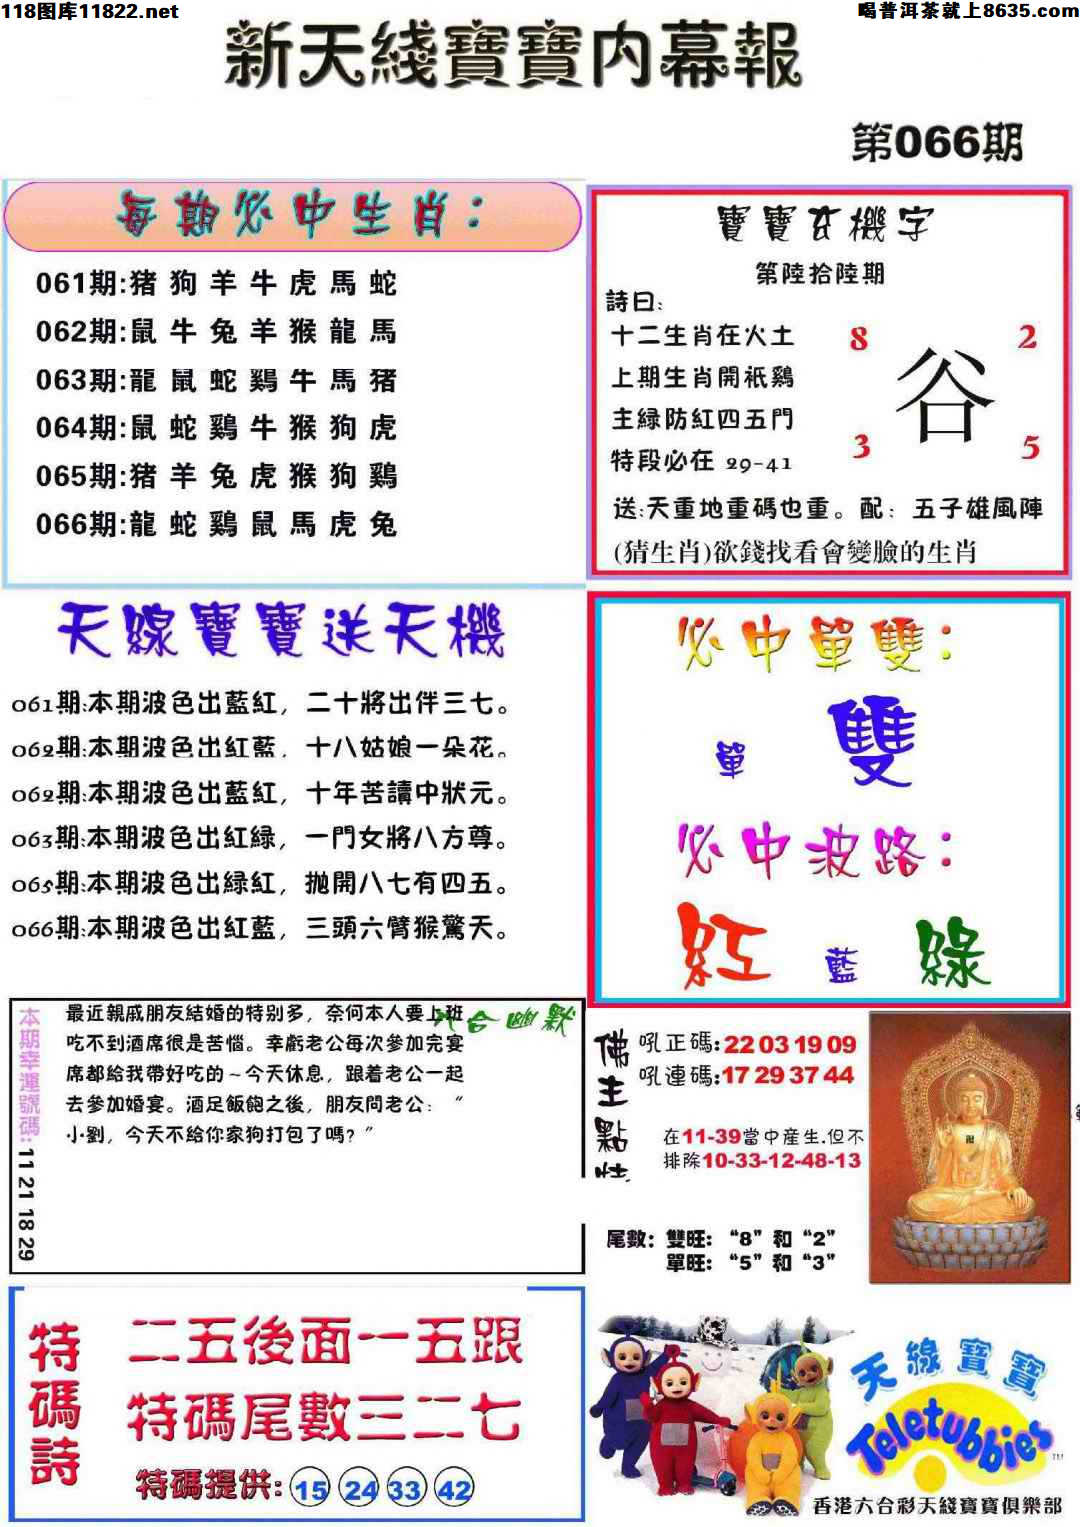 118图库11822.net
喝普洱茶就上8635.com
新天綫寶寶内幕報
第066期
每期必中生肖：
061期:猪狗羊牛虎馬蛇
062期:鼠牛兔羊猴龍馬
063期:龍鼠蛇鷄牛馬猪
064期:鼠蛇鷄牛猴狗虎
065期:猪羊兔虎猴狗鷄
066期:龍蛇鷄鼠馬虎兔
寶寶玄機字
第陸拾陸期
詩曰:
十二生肖在火土
上期生肖開祇鷄
主緑防紅四五門
特段必在 29-41
8
2
谷
3
5
送:天重地重碼也重。配：五子雄風陣
(猜生肖)欲錢找看會變臉的生肖
天線寶寶送天機
061期:本期波色出藍紅，二十將出伴三七。
062期:本期波色出紅藍，十八姑娘一朵花。
062期:本期波色出藍紅，十年苦讀中狀元。
063期:本期波色出紅緑，一門女將八方尊。
065期:本期波色出緑紅，抛開八七有四五。
066期:本期波色出紅藍，三頭六臂猴驚天。
必中單雙：
單 雙
必中波路：
紅 藍 綠
本期幸運號碼: 11 21 18 29
六合幽默
最近親戚朋友結婚的特别多，奈何本人要上班
吃不到酒席很是苦惱。幸虧老公每次參加完宴
席都給我帶好吃的～今天休息，跟着老公一起
去參加婚宴。酒足飯飽之後，朋友問老公：“
小劉，今天不給你家狗打包了嗎？”
佛主點特
吼正碼:22 03 19 09
吼連碼:17 29 37 44
在11-39當中産生.但不
排除10-33-12-48-13
尾數：雙旺：“8”和“2”
單旺：“5”和“3”
特碼詩
二五後面一五跟
特碼尾數三二七
特碼提供: 15 24 33 42
天線寶寶
Teletubbies
TM
香港六合彩天綫寶寶俱樂部